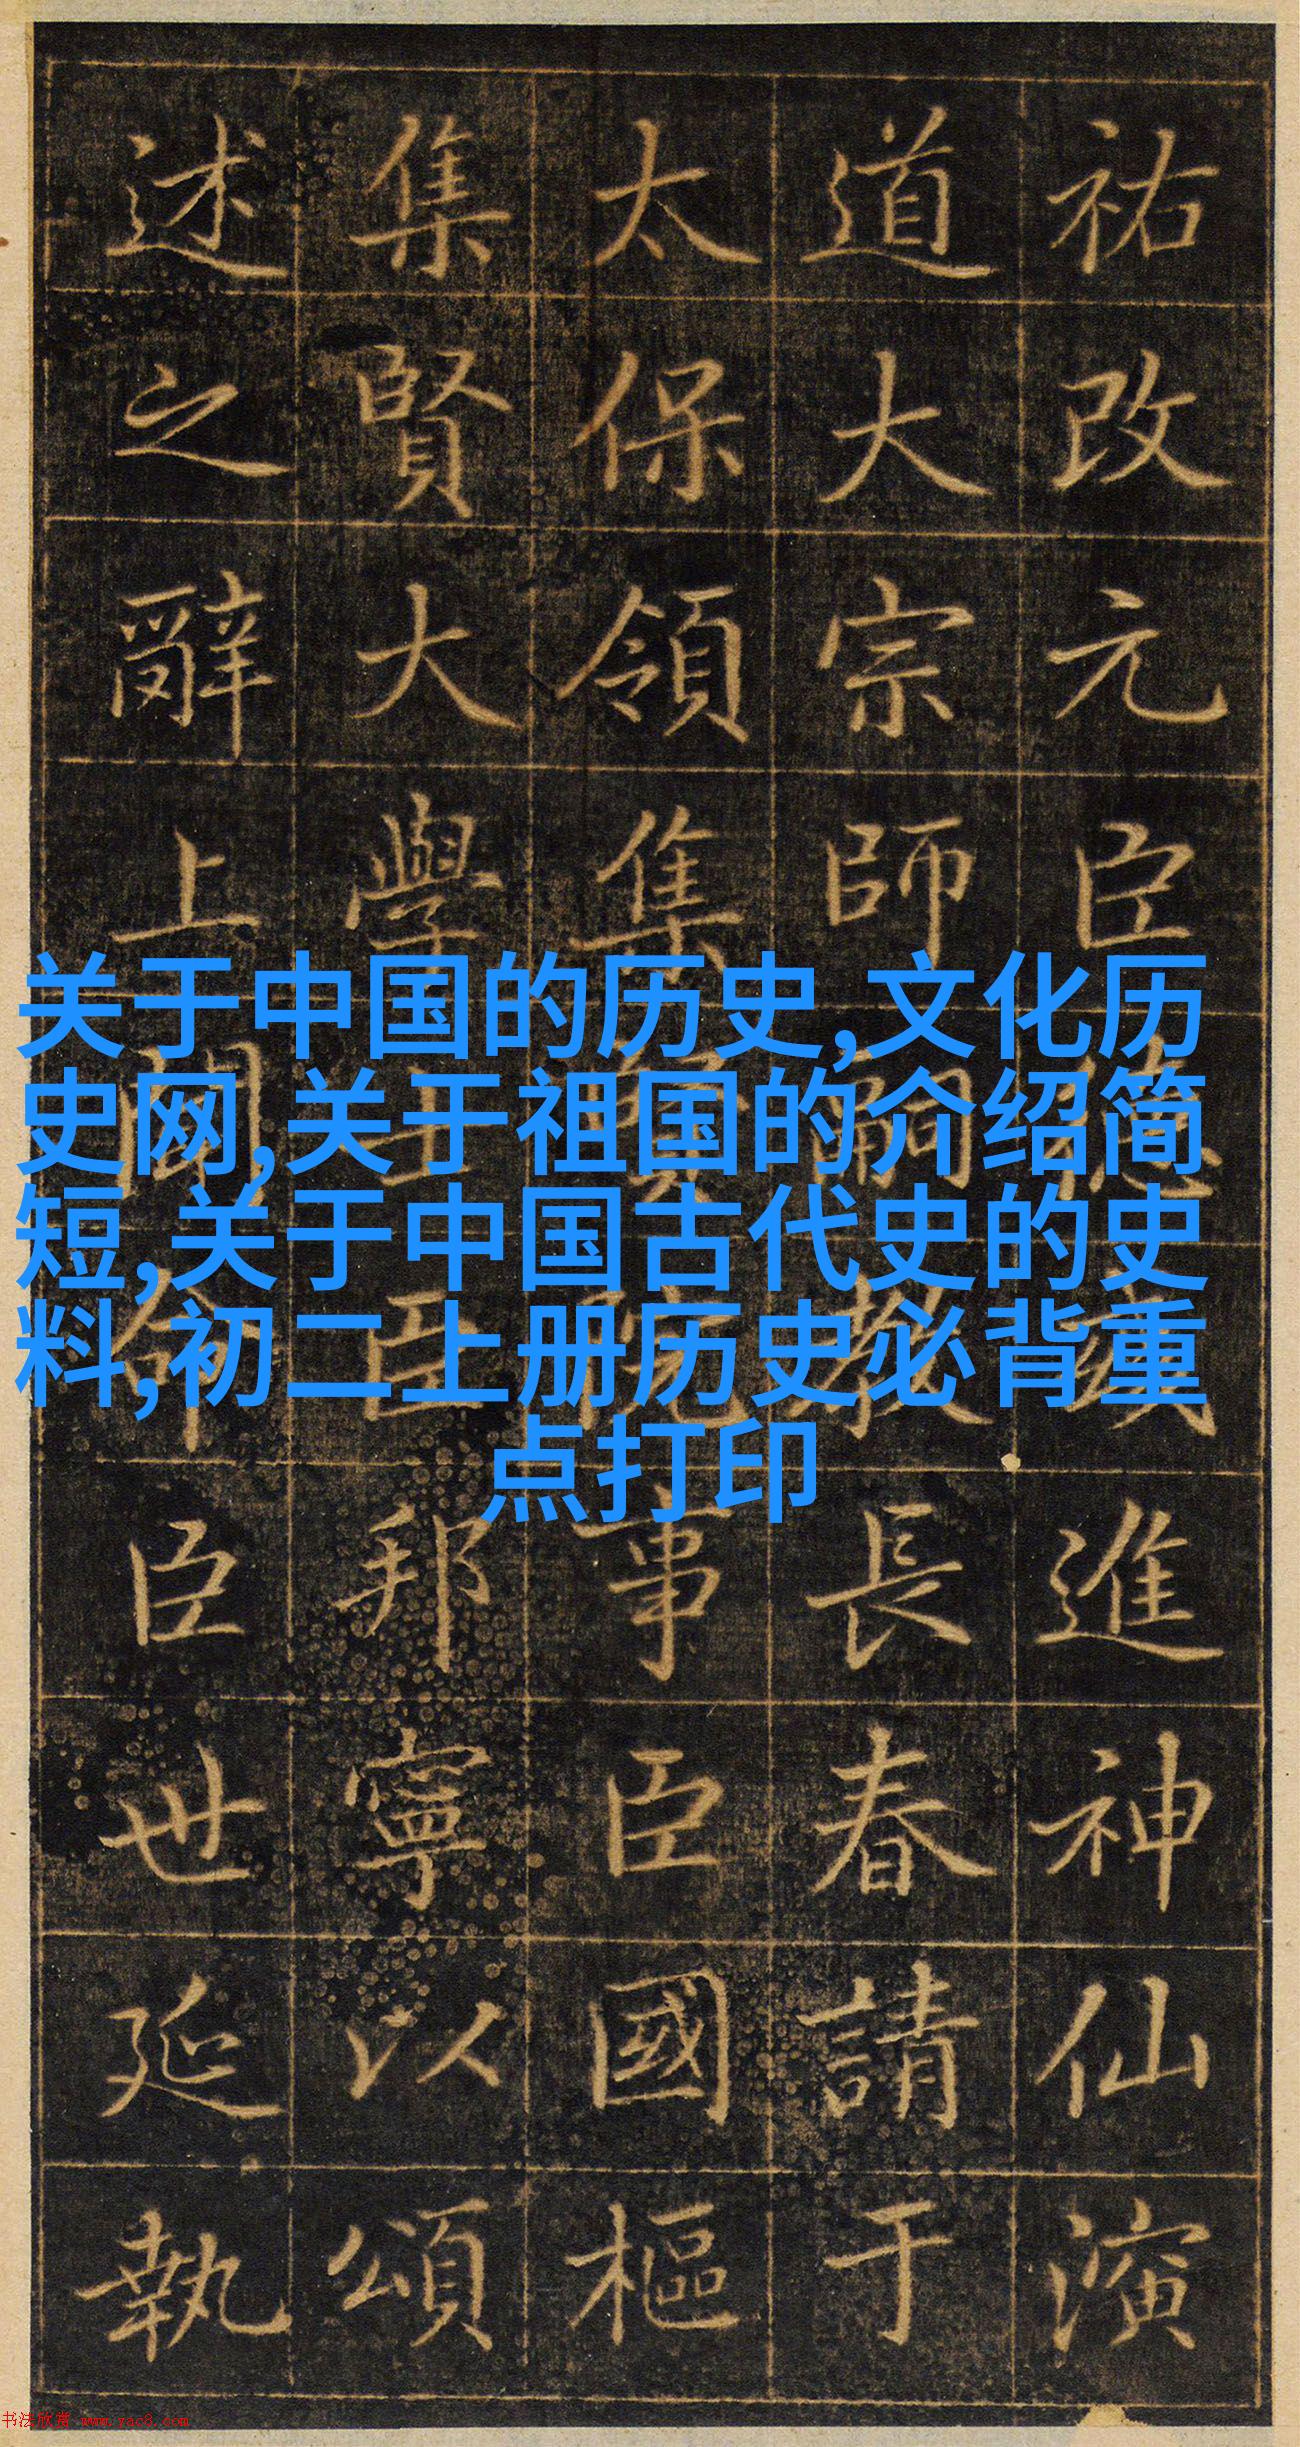 祐改元臣德彧進神仙演
道大宗師嗣教長春請于
太保領集賢院事臣國樞
集賢大學士臣邦寧以頌
述之辭上聞命臣世延執
关于中国的历史,文化历
史网,关于祖国的介绍简
短,关于中国古代史的史
料,初二上册历史必背重
点打印
书法欣赏 www.yac8.com